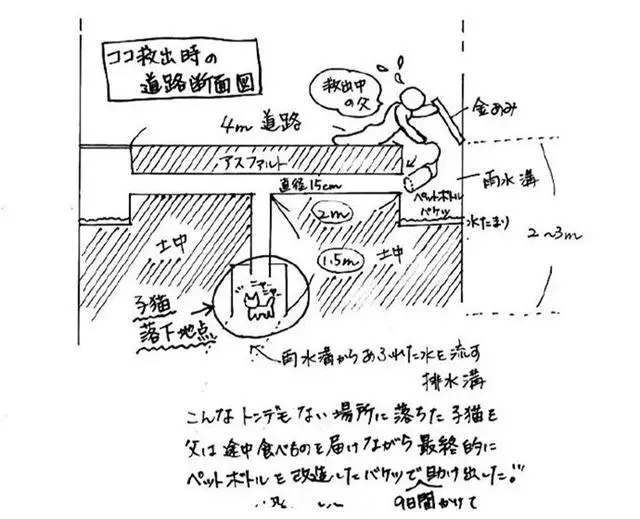 ココ救出時の
道路断面図
救出中
の父
金あみ
4m 道路
アスファルト
雨水溝
直径15cm
ペットボトル
バケツ
水たまり
2m
2~3m
土中
1.5m
土中
ニャー
ニャー
子猫
落下地点
雨水溝からあふれた水を流す
排水溝
こんなトンデもない場所に落ちた子猫を
父は途中食べものを届けながら最終的に
ペットボトルを改造したバケツで助け出した!!
9日間かけて